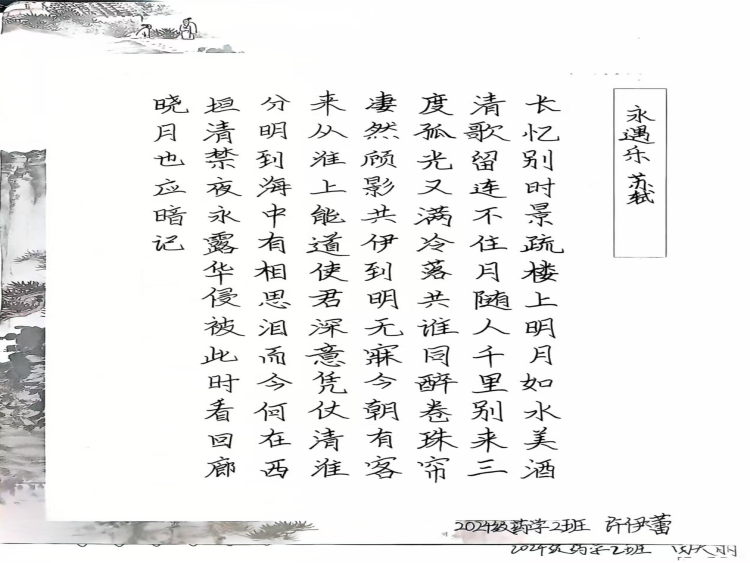 永遇乐 苏轼
长忆别时景疏楼上明月如水美酒
清歌留连不住月随人千里别来三
度孤光又满冷落共谁同醉卷珠帘
凄然顾影共伊到明无寐今朝有客
来从淮上能道使君深意凭仗清淮
分明到海中有相思泪而今何在西
垣清禁夜永露华侵被此时看回廊
晓月也应暗记
2024级药学2班 许伊蕾
2024级药学2班